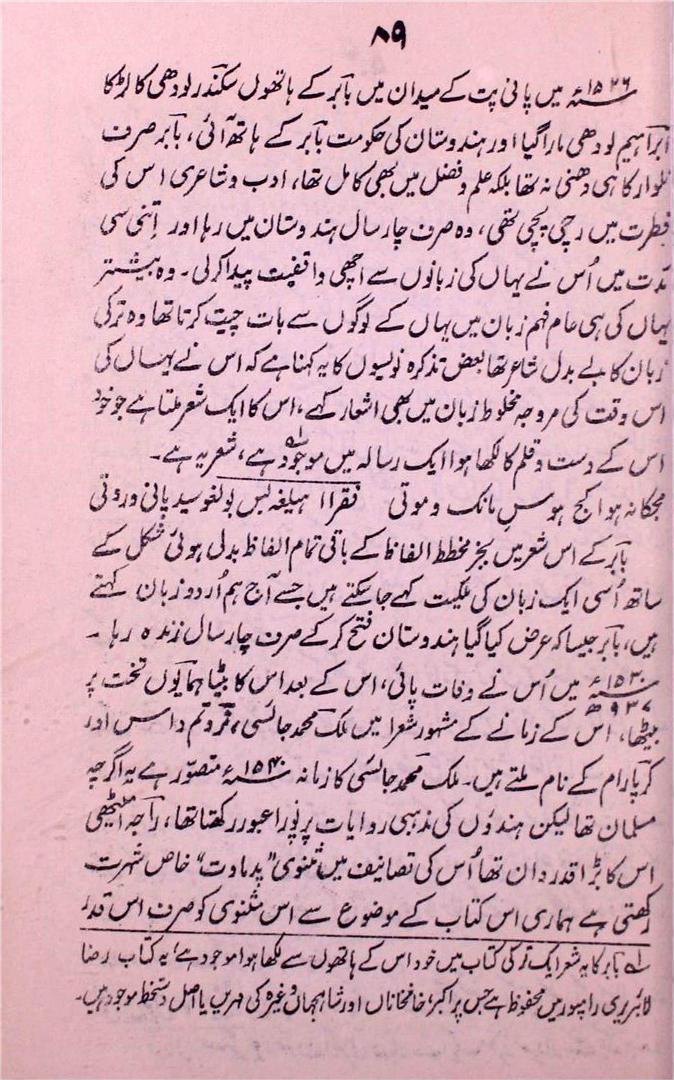 ۸۹
۱۵۲۶ء میں پانی پت کے میدان میں بابر کے ہاتھوں سکندر لودھی کا لڑکا
ابراہیم لودھی مارا گیا اور ہندوستان کی حکومت بابر کے ہاتھ آئی، بابر صرف
تلوار کا ہی دھنی نہ تھا بلکہ علم و فضل میں بھی کامل تھا، ادب و شاعری اس کی
فطرت میں رچی پچی تھی، وہ صرف چار سال ہندوستان میں رہا اور اتنی سی
مدت میں اُس نے یہاں کی زبانوں سے اچھی واقفیت پیدا کرلی۔ وہ بیشتر
یہاں کی ہی عام فہم زبان میں یہاں کے لوگوں سے بات چیت کرتا تھا وہ ترکی
زبان کا بے بدل شاعر تھا بعض تذکرہ نویسوں کا یہ کہنا ہے کہ اس نے یہاں کی
اس وقت کی مروجہ مخلوط زبان میں بھی اشعار کہے، اس کا ایک شعر ملتا ہے جو خود
اس کے دست و قلم کا لکھا ہوا ایک رسالہ میں موجود ہے، شعر یہ ہے۔
مجکا نہ ہوا کج ہوس مانک و موتی فقرا ہلیغہ بس بولغوسیدپانی و روتی
بابر کے اس شعر میں بجز مخطط الفاظ کے باقی تمام الفاظ بدلی ہوئی شکل کے
ساتھ اُسی ایک زبان کی ملکیت کہے جاسکتے ہیں جسے آج ہم اُردو زبان کہتے
ہیں، بابر جیسا کہ عرض کیا گیا ہندوستان فتح کرکے صرف چار سال زندہ رہا ۔
۱۵۳۰ء ۹۳۷ھ میں اُس نے وفات پائی، اس کے بعد اس کا بیٹا ہمایوں تخت پر
بیٹھا، اس کے زمانے کے مشہور شعرا میں ملک محمد جائسی، نروتم داس اور
کرپا رام کے نام ملتے ہیں۔ ملک محمد جائسی کا زمانہ ۱۵۴۰ء متصوّر ہے یہ اگرچہ
مسلمان تھا لیکن ہندوں کی مذہبی روایات پر پورا عبور رکھتا تھا، راجہ امٹھی
اس کا بڑا قدردان تھا اُس کی تصانیف میں مثنوی "پدماوت" خاص شہرت
رکھتی ہے ہماری اس کتاب کے موضوع سے اس مثنوی کو صرف اس قدر
لہ بابر کا یہ شعر ایک ترکی کتاب میں خود اس کے ہاتھوں سے لکھا ہوا موجود ہے، یہ کتاب رضا
لائبریری رامپور میں محفوظ ہے جس پر اکبر، خانخاناں اور شاہجہاں وغیرہ کی مہریں یا اصل دستخط موجود ہیں۔